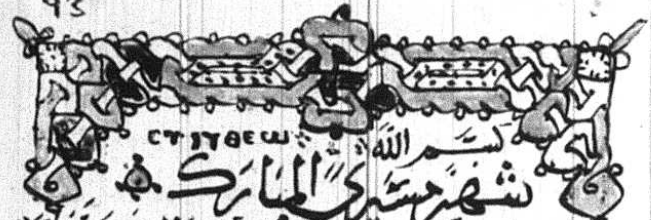 93
ⲥⲩⲛⲑⲉⲱ بسم الله
شهر مسرى المبارك